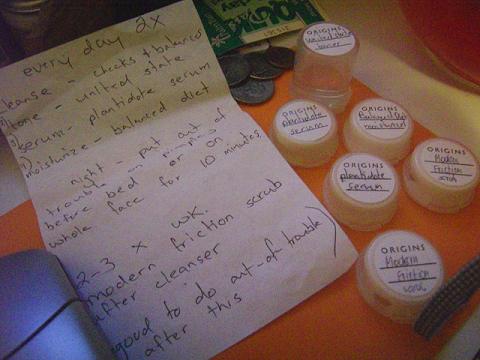 every day 2x
cleanse - checks & balances
tone - united state
serum - plantidote serum
moisturize - balanced diet
night - put out of
trouble on pimples
before bed or on
whole face for 10 minutes
2-3 x wk.
modern friction scrub
after cleanser
good to do out-of trouble
after this
ORIGINS
united state
ORIGINS
plantidote
serum
ORIGINS
balanced diet
moisturizer
ORIGINS
plantidote
serum
ORIGINS
Modern
Friction
ORIGINS
Modern
Friction